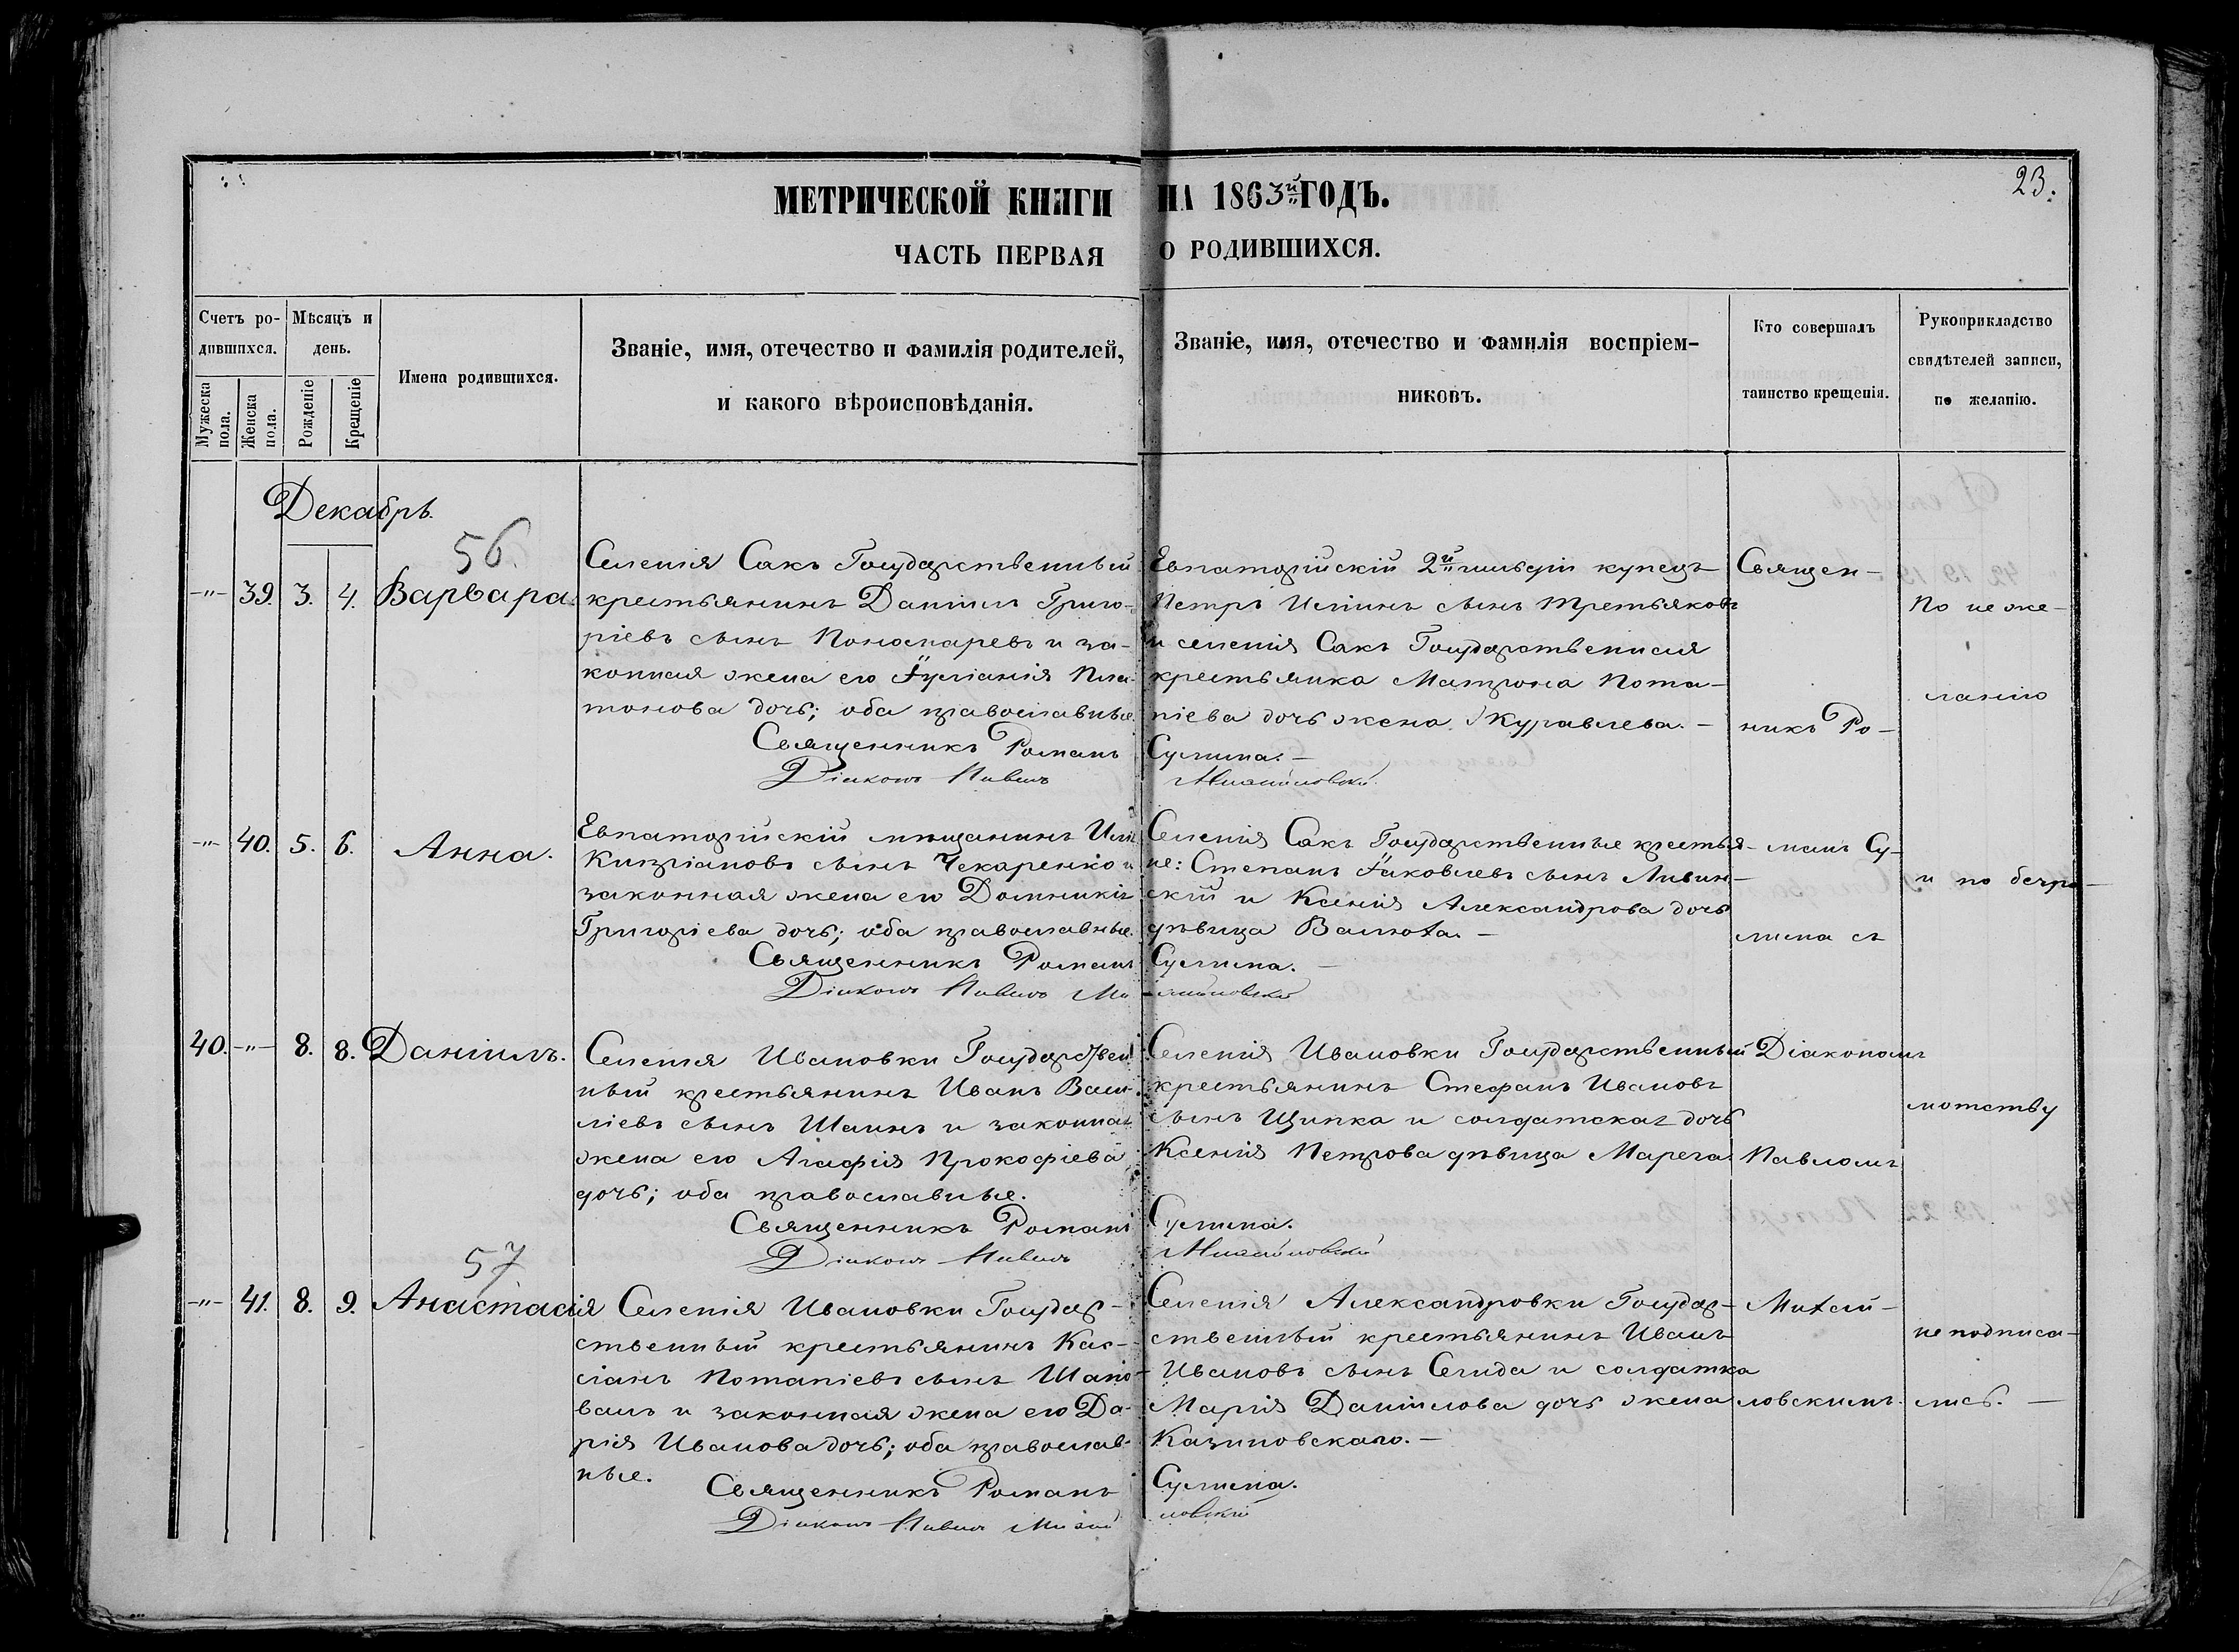 23.
МЕТРИЧЕСКОЙ КНИГИ НА 1863й ГОДЪ.
ЧАСТЬ ПЕРВАЯ О РОДИВШИХСЯ.
Счетъ ро-
дившихся.
Мужеска пола.
Женска пола.
Мѣсяцъ и
день.
Рожденіе
Крещеніе
Имена родившихся.
Званіе, имя, отечество и фамилія родителей,
и какого вѣроисповѣданія.
Званіе, имя, отечество и фамилія воспріем-
никовъ.
Кто совершалъ
таинство крещенія.
Рукоприкладство
свидѣтелей записи,
по желанію.
Декабрь.
56.
-"- 39. 3. 4. Варвара.
Селенія Сакъ Государственный
крестьянинъ Даніилъ Григо-
ріевъ сынъ Пономаревъ и за-
конная жена его Іуліанія Пла-
тонова дочь; оба православные.
Священникъ Романъ Сулима.
Діаконъ Павелъ Михайловскій
Евпаторійскій 2й гильдіи купецъ
Петръ Ильинъ сынъ Третьяковъ
и селенія Сакъ Государственная
крестьянка Матрона Пота-
піева дочь жена Журавлева.
-"- 40. 5. 6. Анна.
Евпаторійскій мѣщанинъ Илія
Кипріановъ сынъ Чекаренко и
законная жена его Домникія
Григоріева дочь; оба православные.
Священникъ Романъ Сулима.
Діаконъ Павелъ Михайловскій
Селенія Сакъ Государственные крестья-
не: Степанъ Іаковлевъ сынъ Ливин-
скій и Ксенія Александрова дочь
дѣвица Валюха.
40. -"- 8. 8. Даніилъ.
Селенія Ивановки Государствен-
ный крестьянинъ Иванъ Васи-
ліевъ сынъ Шаинъ и законная
жена его Агафія Прокофіева
дочь; оба православные.
Священникъ Романъ Сулима.
Діаконъ Павелъ Михайловскій
Селенія Ивановки Государственный
крестьянинъ Стефанъ Ивановъ
сынъ Щипка и солдатская дочь
Ксенія Петрова дѣвица
57
-"- 41. 8. 9. Анастасія
Селенія Ивановки Государ-
ственный крестьянинъ Кас-
сіанъ Потапіевъ сынъ Шапо-
валъ и законная жена его Да-
рія Иванова дочь; оба православ-
ные.
Священникъ Романъ Сулима.
Діаконъ Павелъ Михайловскій
Селенія Александровки Государ-
ственный крестьянинъ Иванъ
Ивановъ сынъ Сегида и солдатка
Марія Даніилова дочь жена
Казиновскаго.
Священ-
никъ Ро-
манъ Су-
лима съ
Діакономъ
Павломъ
Михай-
ловскимъ.
По не же-
ланію
и по безгра-
мотству
не подписа-
лись.